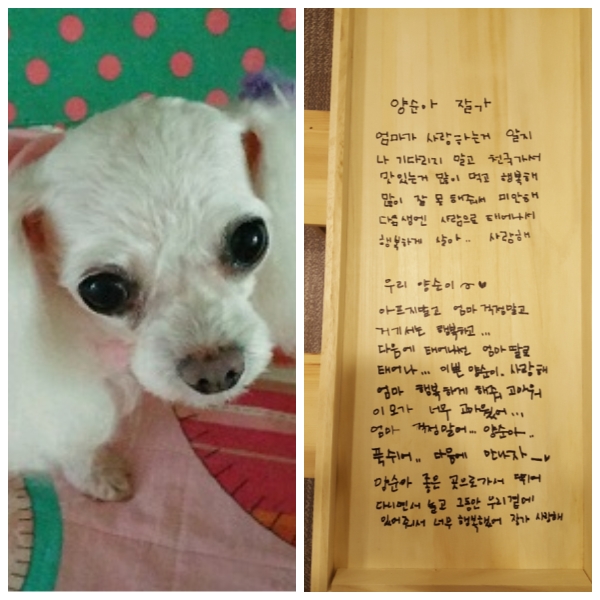 양순아 잘가
엄마가 사랑하는거 알지
나 기다리지 말고 천국가서
맛있는거 많이 먹고 행복해
많이 잘 못 해줘서 미안해
다음생엔 사람으로 태어나서
행복하게 살아.. 사랑해
우리 양순이 ♥
아프지말고 엄마 걱정말고
거기서도 행복하고...
다음에 태어나면 엄마 딸로
태어나... 이쁜 양순이. 사랑해
엄마 행복하게 해줘 고마워
이모가 너무 고마웠어...
엄마 걱정말어... 양순아..
푹쉬어.. 다음에 만나자 ♥
양순아 좋은 곳으로가서 뛰어
다니면서 놀고 그동안 우리곁에
있어줘서 너무 행복했어 잘가 사랑해